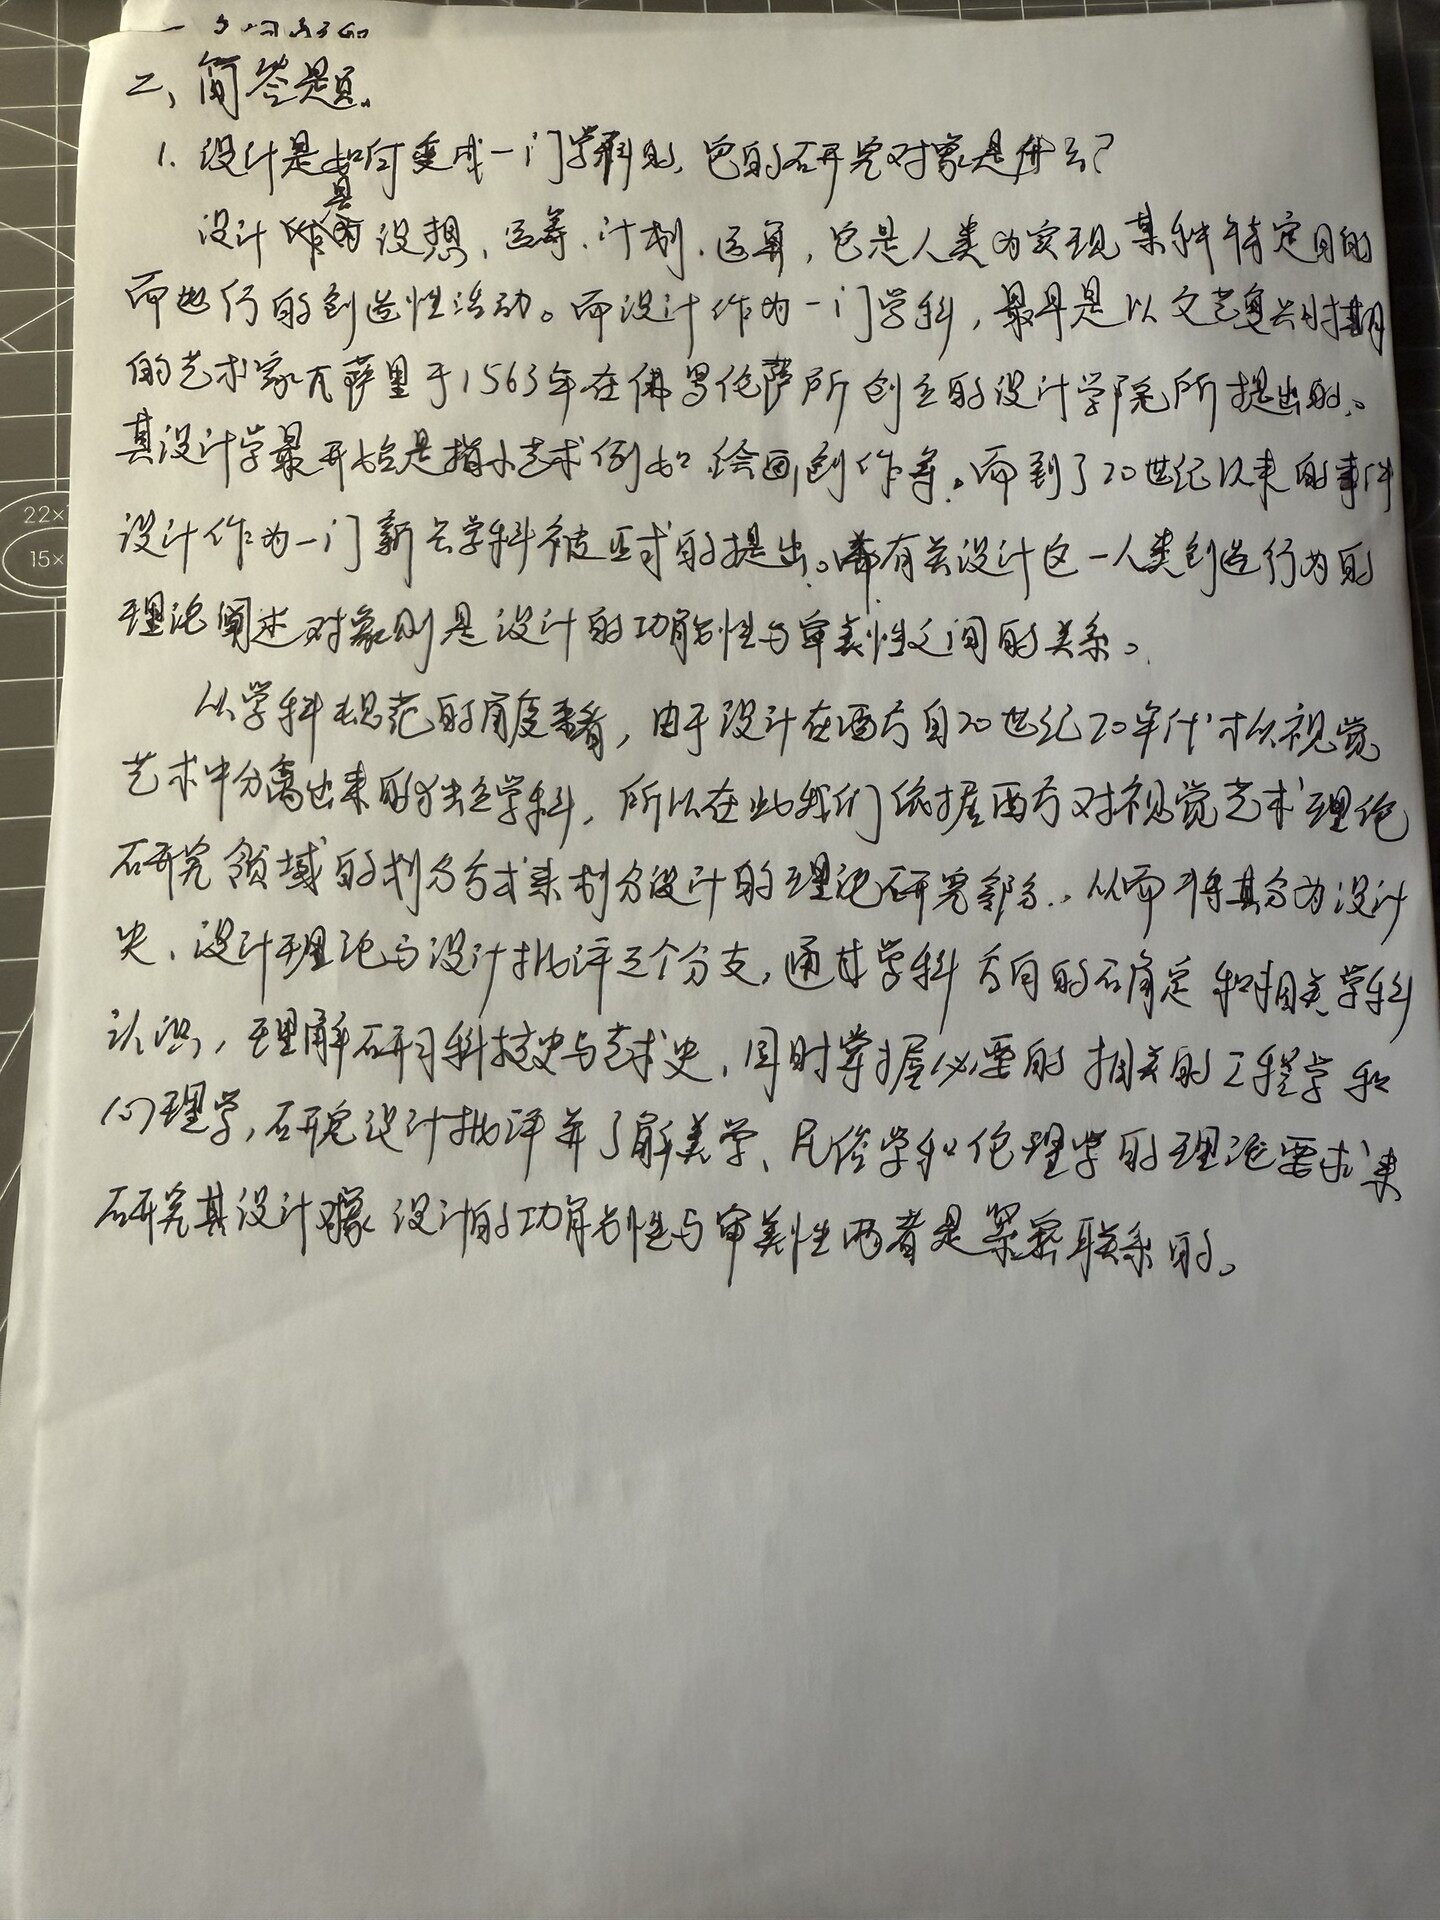 二、简答题.
1. 设计是如何变成一门学科的, 它的研究对象是什么?
设计是设想、运筹、计划、运算, 它是人类为实现某种特定目的
而进行的创造性活动。而设计作为一门学科, 最早是以文艺复兴时期
的艺术家瓦萨里于1563年在佛罗伦萨所创立的设计学院所提出的。
其设计学最开始是指小艺术例如绘画创作等。而到了20世纪以来的事件
设计作为一门新兴学科被正式的提出。有关设计这一人类创造行为的
理论阐述对象则是设计的功能性与审美性之间的关系。
从学科规范的角度来看, 由于设计在西方自20世纪20年代才从视觉
艺术中分离出来的独立学科, 所以在此我们依据西方对视觉艺术理论
研究领域的划分方式来划分设计的理论研究部分. 从而将其分为设计
史、设计理论与设计批评三个分支, 通过学科方向的确定和相关学科
认识, 理解研习科技史与艺术史, 同时掌握必要的相关的工程学和
心理学, 研究设计批评并了解美学、民俗学和伦理学的理论要求来
研究其设计对象 设计的功能性与审美性两者是紧密联系的。
22×
15×